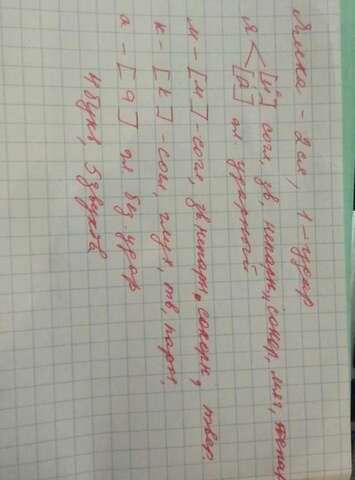 Ямка - 2 сл, 1 - удар
я < [й'] согл, зв, непарн, сонор, мяг, непар
[а] гл ударный
м - [м] - согл, зв непарн, сонорн, твер
к - [к] - согл, глух, тв, парн,
а - [а] гл без удар
4 букв, 5 звуков